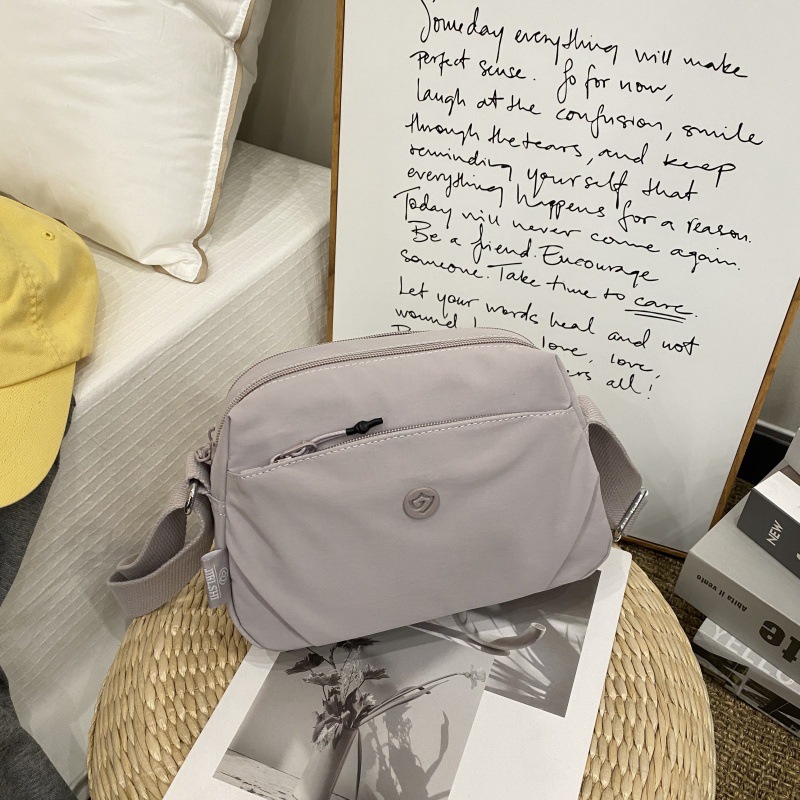 Someday everything will make
perfect sense. So for now,
laugh at the confusion, smile
through the tears, and keep
reminding yourself that
everything happens for a reason.
Today will never come again.
Be a friend. Encourage
someone. Take time to care.
Let your words heal and not
wound
love, love,
all!
JIBLSHI
NEW
Abita il vento
YELLOW